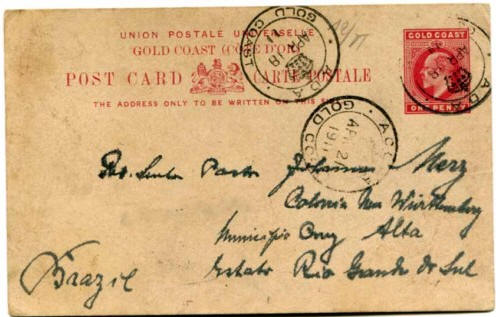 UNION POSTALE UNIVERSELLE
GOLD COAST (CÔTE D'OR)
POST CARD CARTE POSTALE
THE ADDRESS ONLY TO BE WRITTEN ON THIS
GOLD COAST
ONE PENNY
ADA
GOLD COAST
AP 8
ACC
AP 2
1911
GOLD CO
Pastor Johannes Merz
Colonia Neu Württemberg
Municipio Cruz Alta
Estado Rio Grande do Sul
Brazil